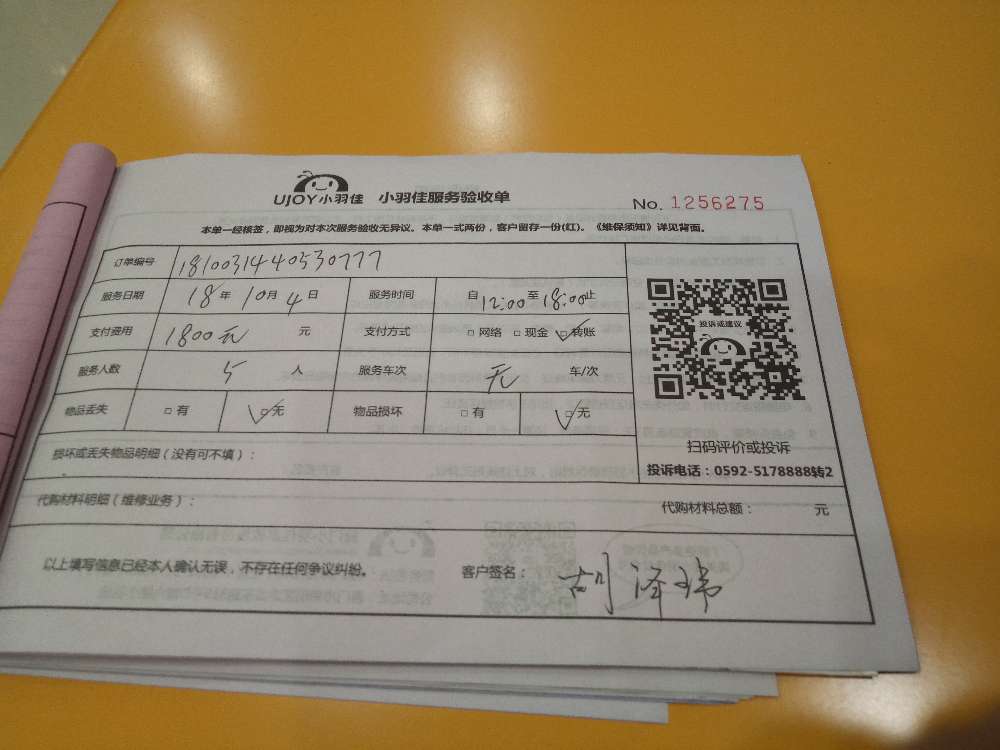 UJOY小羽佳 小羽佳服务验收单
No. 1256275
本单一经核签，即视为对本次服务验收无异议。本单一式两份，客户留存一份(红)。《维保须知》详见背面。
订单编号 181003144053077
服务日期 18年 10月 4日 服务时间 自12:00至18:00止
支付费用 1800元 元 支付方式 □ 网络 □ 现金 □ 转账
服务人数 5 人 服务车次 无 车/次
物品丢失 □ 有 □ 无 物品损坏 □ 有 □ 无
投诉或建议
扫码评价或投诉
投诉电话：0592-5178888转2
损坏或丢失物品明细（没有可不填）：
代购材料明细（维修业务）： 代购材料总额： 元
以上填写信息已经本人确认无误，不存在任何争议纠纷。 客户签名： 胡泽玮